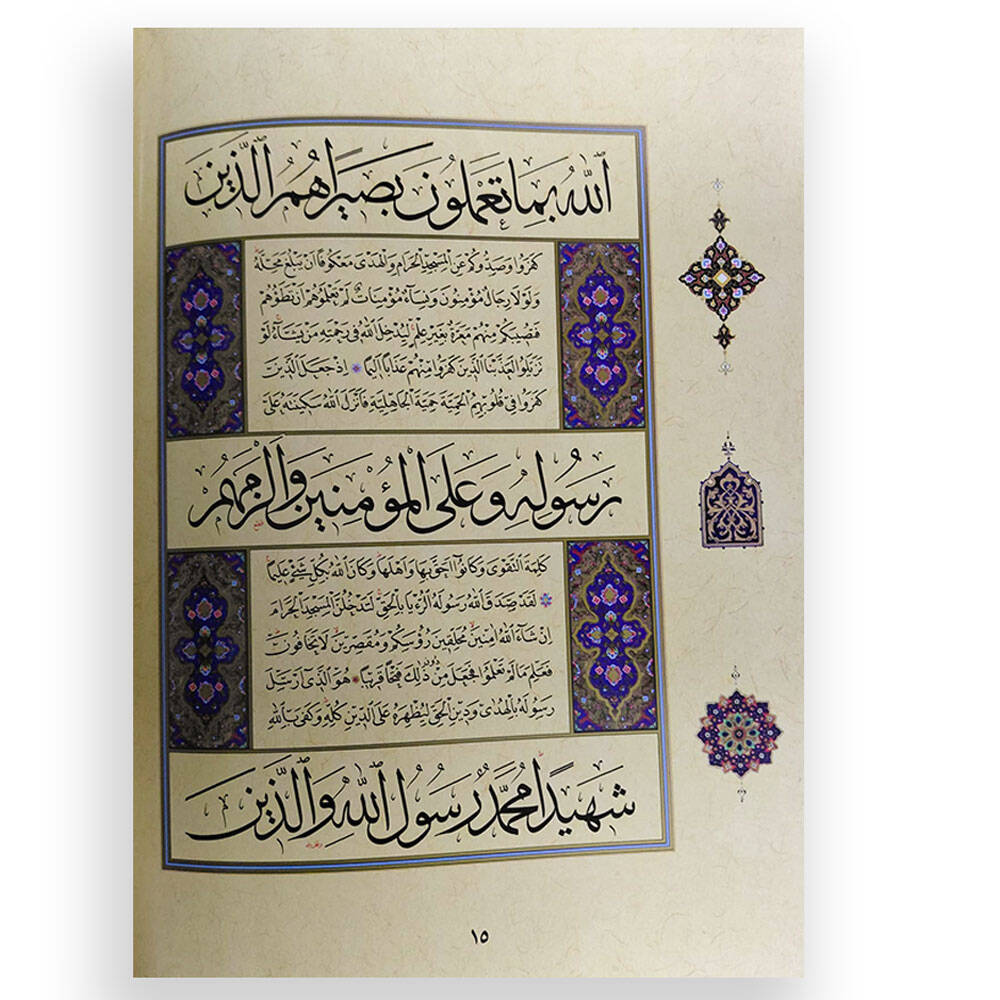 ٱللَّهُ بِمَا تَعْمَلُونَ بَصِيرًا هُمُ ٱلَّذِينَ
كَفَرُوا وَصَدُّوكُمْ عَنِ ٱلْمَسْجِدِ ٱلْحَرَامِ وَٱلْهَدْىَ مَعْكُوفًا أَنْ يَبْلُغَ مَحِلَّهُ
وَلَوْلَا رِجَالٌ مُؤْمِنُونَ وَنِسَآءٌ مُؤْمِنَاتٌ لَمْ تَعْلَمُوهُمْ أَنْ تَطَؤُهُمْ
فَتُصِيبَكُمْ مِنْهُمْ مَعَرَّةٌ بِغَيْرِ عِلْمٍ لِيُدْخِلَ ٱللَّهُ فِى رَحْمَتِهِ مَنْ يَشَآءُ لَوْ
تَزَيَّلُوا لَعَذَّبْنَا ٱلَّذِينَ كَفَرُوا مِنْهُمْ عَذَابًا أَلِيمًا إِذْ جَعَلَ ٱلَّذِينَ
كَفَرُوا فِى قُلُوبِهِمُ ٱلْحَمِيَّةَ حَمِيَّةَ ٱلْجَاهِلِيَّةِ فَأَنْزَلَ ٱللَّهُ سَكِينَتَهُ عَلَىٰ
رَسُولِهِ وَعَلَى ٱلْمُؤْمِنِينَ وَأَلْزَمَهُمْ
كَلِمَةَ ٱلتَّقْوَىٰ وَكَانُوٓا أَحَقَّ بِهَا وَأَهْلَهَا وَكَانَ ٱللَّهُ بِكُلِّ شَىْءٍ عَلِيمًا
لَقَدْ صَدَقَ ٱللَّهُ رَسُولَهُ ٱلرُّءْيَا بِٱلْحَقِّ لَتَدْخُلُنَّ ٱلْمَسْجِدَ ٱلْحَرَامَ
إِنْ شَآءَ ٱللَّهُ آمِنِينَ مُحَلِّقِينَ رُؤُسَكُمْ وَمُقَصِّرِينَ لَا تَخَافُونَ
فَعَلِمَ مَا لَمْ تَعْلَمُوا فَجَعَلَ مِنْ دُونِ ذَٰلِكَ فَتْحًا قَرِيبًا هُوَ ٱلَّذِىٓ أَرْسَلَ
رَسُولَهُ بِٱلْهُدَىٰ وَدِينِ ٱلْحَقِّ لِيُظْهِرَهُ عَلَى ٱلدِّينِ كُلِّهِ وَكَفَىٰ بِٱللَّهِ
شَهِيدًا مُحَمَّدٌ رَسُولُ ٱللَّهِ وَٱلَّذِينَ
١٥